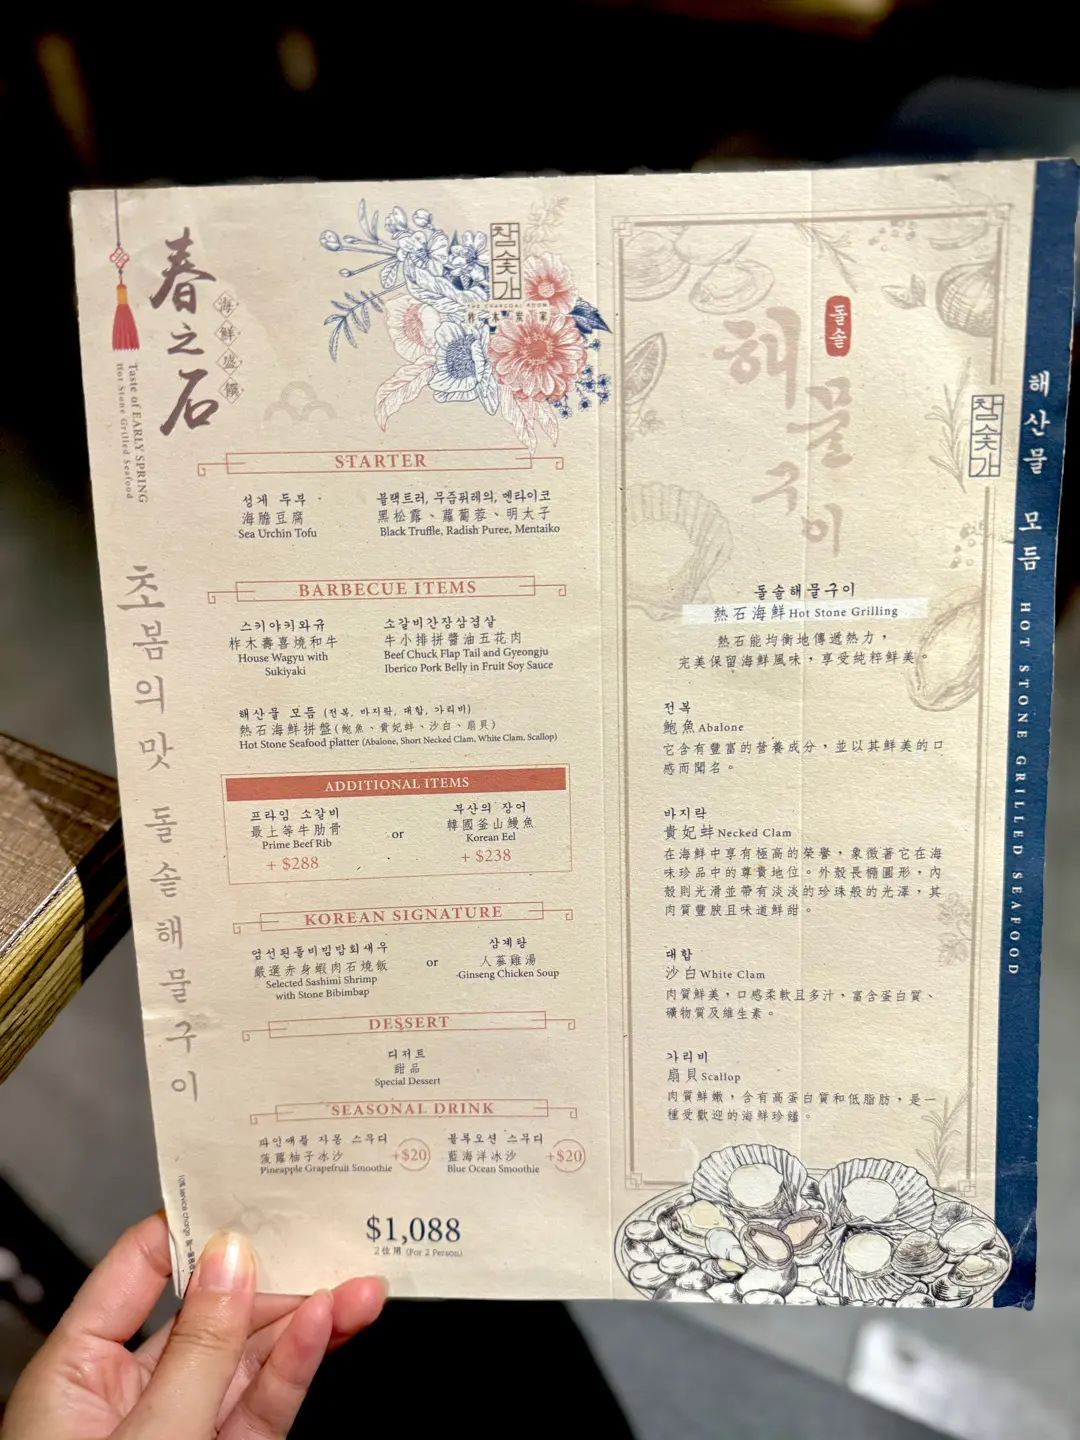 春之石
海鮮盛饌
Taste of EARLY SPRING
Hot Stone Grilled Seafood
초봄의 맛 돌솥해물구이
참숯가
THE CHARCOAL ROOM
柞木炭家
STARTER
성게 두부
海膽豆腐
Sea Urchin Tofu
블랙트러, 무즙퓌레의, 멘타이코
黑松露、蘿蔔蓉、明太子
Black Truffle, Radish Puree, Mentaiko
BARBECUE ITEMS
스키야키와규
柞木壽喜燒和牛
House Wagyu with
Sukiyaki
소갈비간장삼겹살
牛小排拼醬油五花肉
Beef Chuck Flap Tail and Gyeongju
Iberico Pork Belly in Fruit Soy Sauce
해산물 모듬 (전복, 바지락, 대합, 가리비)
熱石海鮮拼盤(鮑魚、貴妃蚌、沙白、扇貝)
Hot Stone Seafood platter (Abalone, Short Necked Clam, White Clam, Scallop)
ADDITIONAL ITEMS
프라임 소갈비
最上等牛肋骨
Prime Beef Rib
+ $288
or
부산의 장어
韓國釜山鰻魚
Korean Eel
+ $238
KOREAN SIGNATURE
엄선된돌비빔밥회새우
嚴選赤身蝦肉石燒飯
Selected Sashimi Shrimp
with Stone Bibimbap
or
삼계탕
人蔘雞湯
Ginseng Chicken Soup
DESSERT
디저트
甜品
Special Dessert
SEASONAL DRINK
파인애플 자몽 스무디
菠蘿柚子冰沙
Pineapple Grapefruit Smoothie
+$20
블루오션 스무디
藍海洋冰沙
Blue Ocean Smoothie
+$20
$1,088
2位用 (For 2 Person)
돌솥
해물구이
돌솥해물구이
熱石海鮮Hot Stone Grilling
熱石能均衡地傳遞熱力，
完美保留海鮮風味，享受純粹鮮美。
전복
鮑魚Abalone
它含有豐富的營養成分，並以其鮮美的口
感而聞名。
바지락
貴妃蚌Necked Clam
在海鮮中享有極高的榮譽，象徵著它在海
味珍品中的尊貴地位。外殼長橢圓形，內
殼則光滑並帶有淡淡的珍珠般的光澤，其
肉質豐腴且味道鮮甜。
대합
沙白White Clam
肉質鮮美，口感柔軟且多汁，富含蛋白質、
礦物質及維生素。
가리비
扇貝Scallop
肉質鮮嫩，含有高蛋白質和低脂肪，是一
種受歡迎的海鮮珍饈。
참숯가
해산물 모듬
HOT STONE GRILLED SEAFOOD